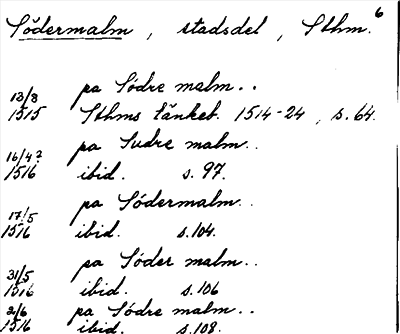 6
Södermalm, stadsdel, Sthm.
13/8 pa Södre malm..
1515 Sthms tänkeb. 1514-24, s. 64.
16/4? pa Sudre malm..
1516 ibid. s. 97.
17/5 pa Södermalm..
1516 ibid. s. 104.
31/5 pa Söder malm..
1516 ibid. s. 106
2/6 pa Södre malm..
1516 ibid. s. 108.